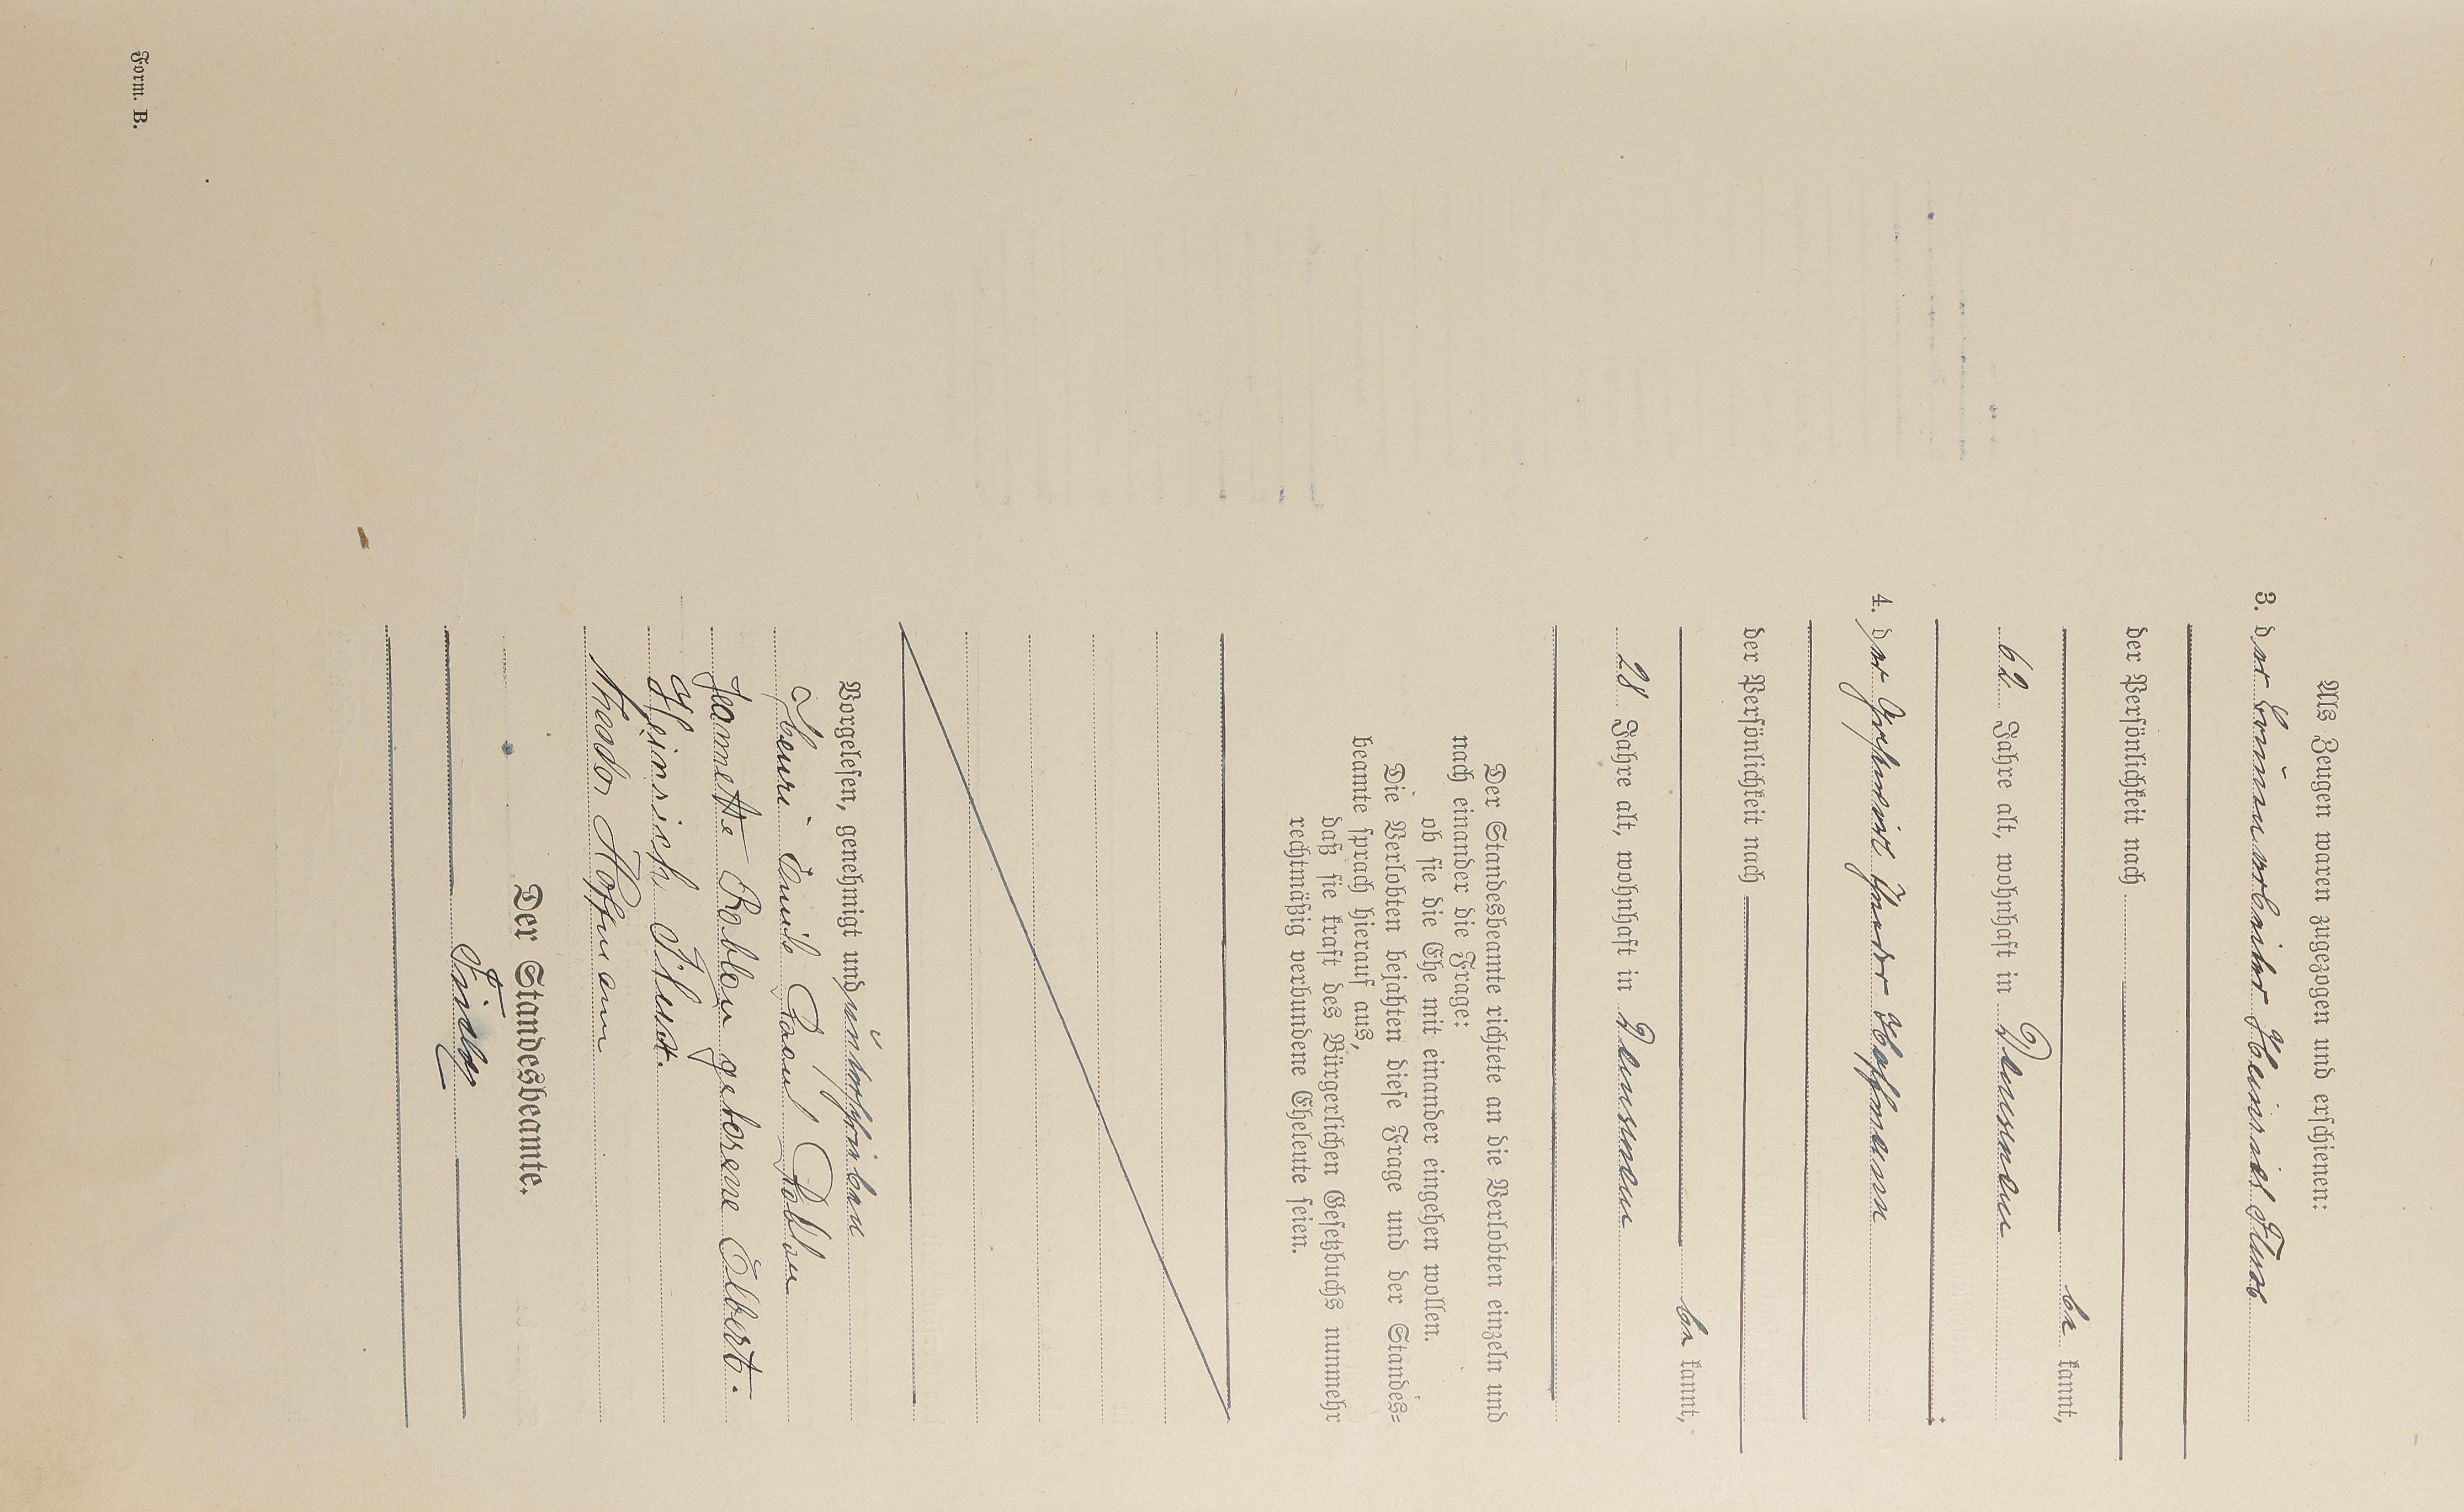 Als Zeugen waren zugezogen und erschienen:
3. der Heinrich
der Persönlichkeit nach
be kannt,
62 Jahre alt, wohnhaft in
4. der Hoffmann
der Persönlichkeit nach
be kannt,
28 Jahre alt, wohnhaft in
Der Standesbeamte richtete an die Verlobten einzeln und
nach einander die Frage:
ob sie die Ehe mit einander eingehen wollen.
Die Verlobten bejahten diese Frage und der Standes=
beamte sprach hierauf aus,
daß sie kraft des Bürgerlichen Gesetzbuchs nunmehr
rechtmäßig verbundene Eheleute seien.
Vorgelesen, genehmigt und unterschrieben
Henri Emile Raoul Roblou
Jeannette Roblou geborene Elbert.
Heinrich
Theodor Hoffmann
Der Standesbeamte.
Form. B.